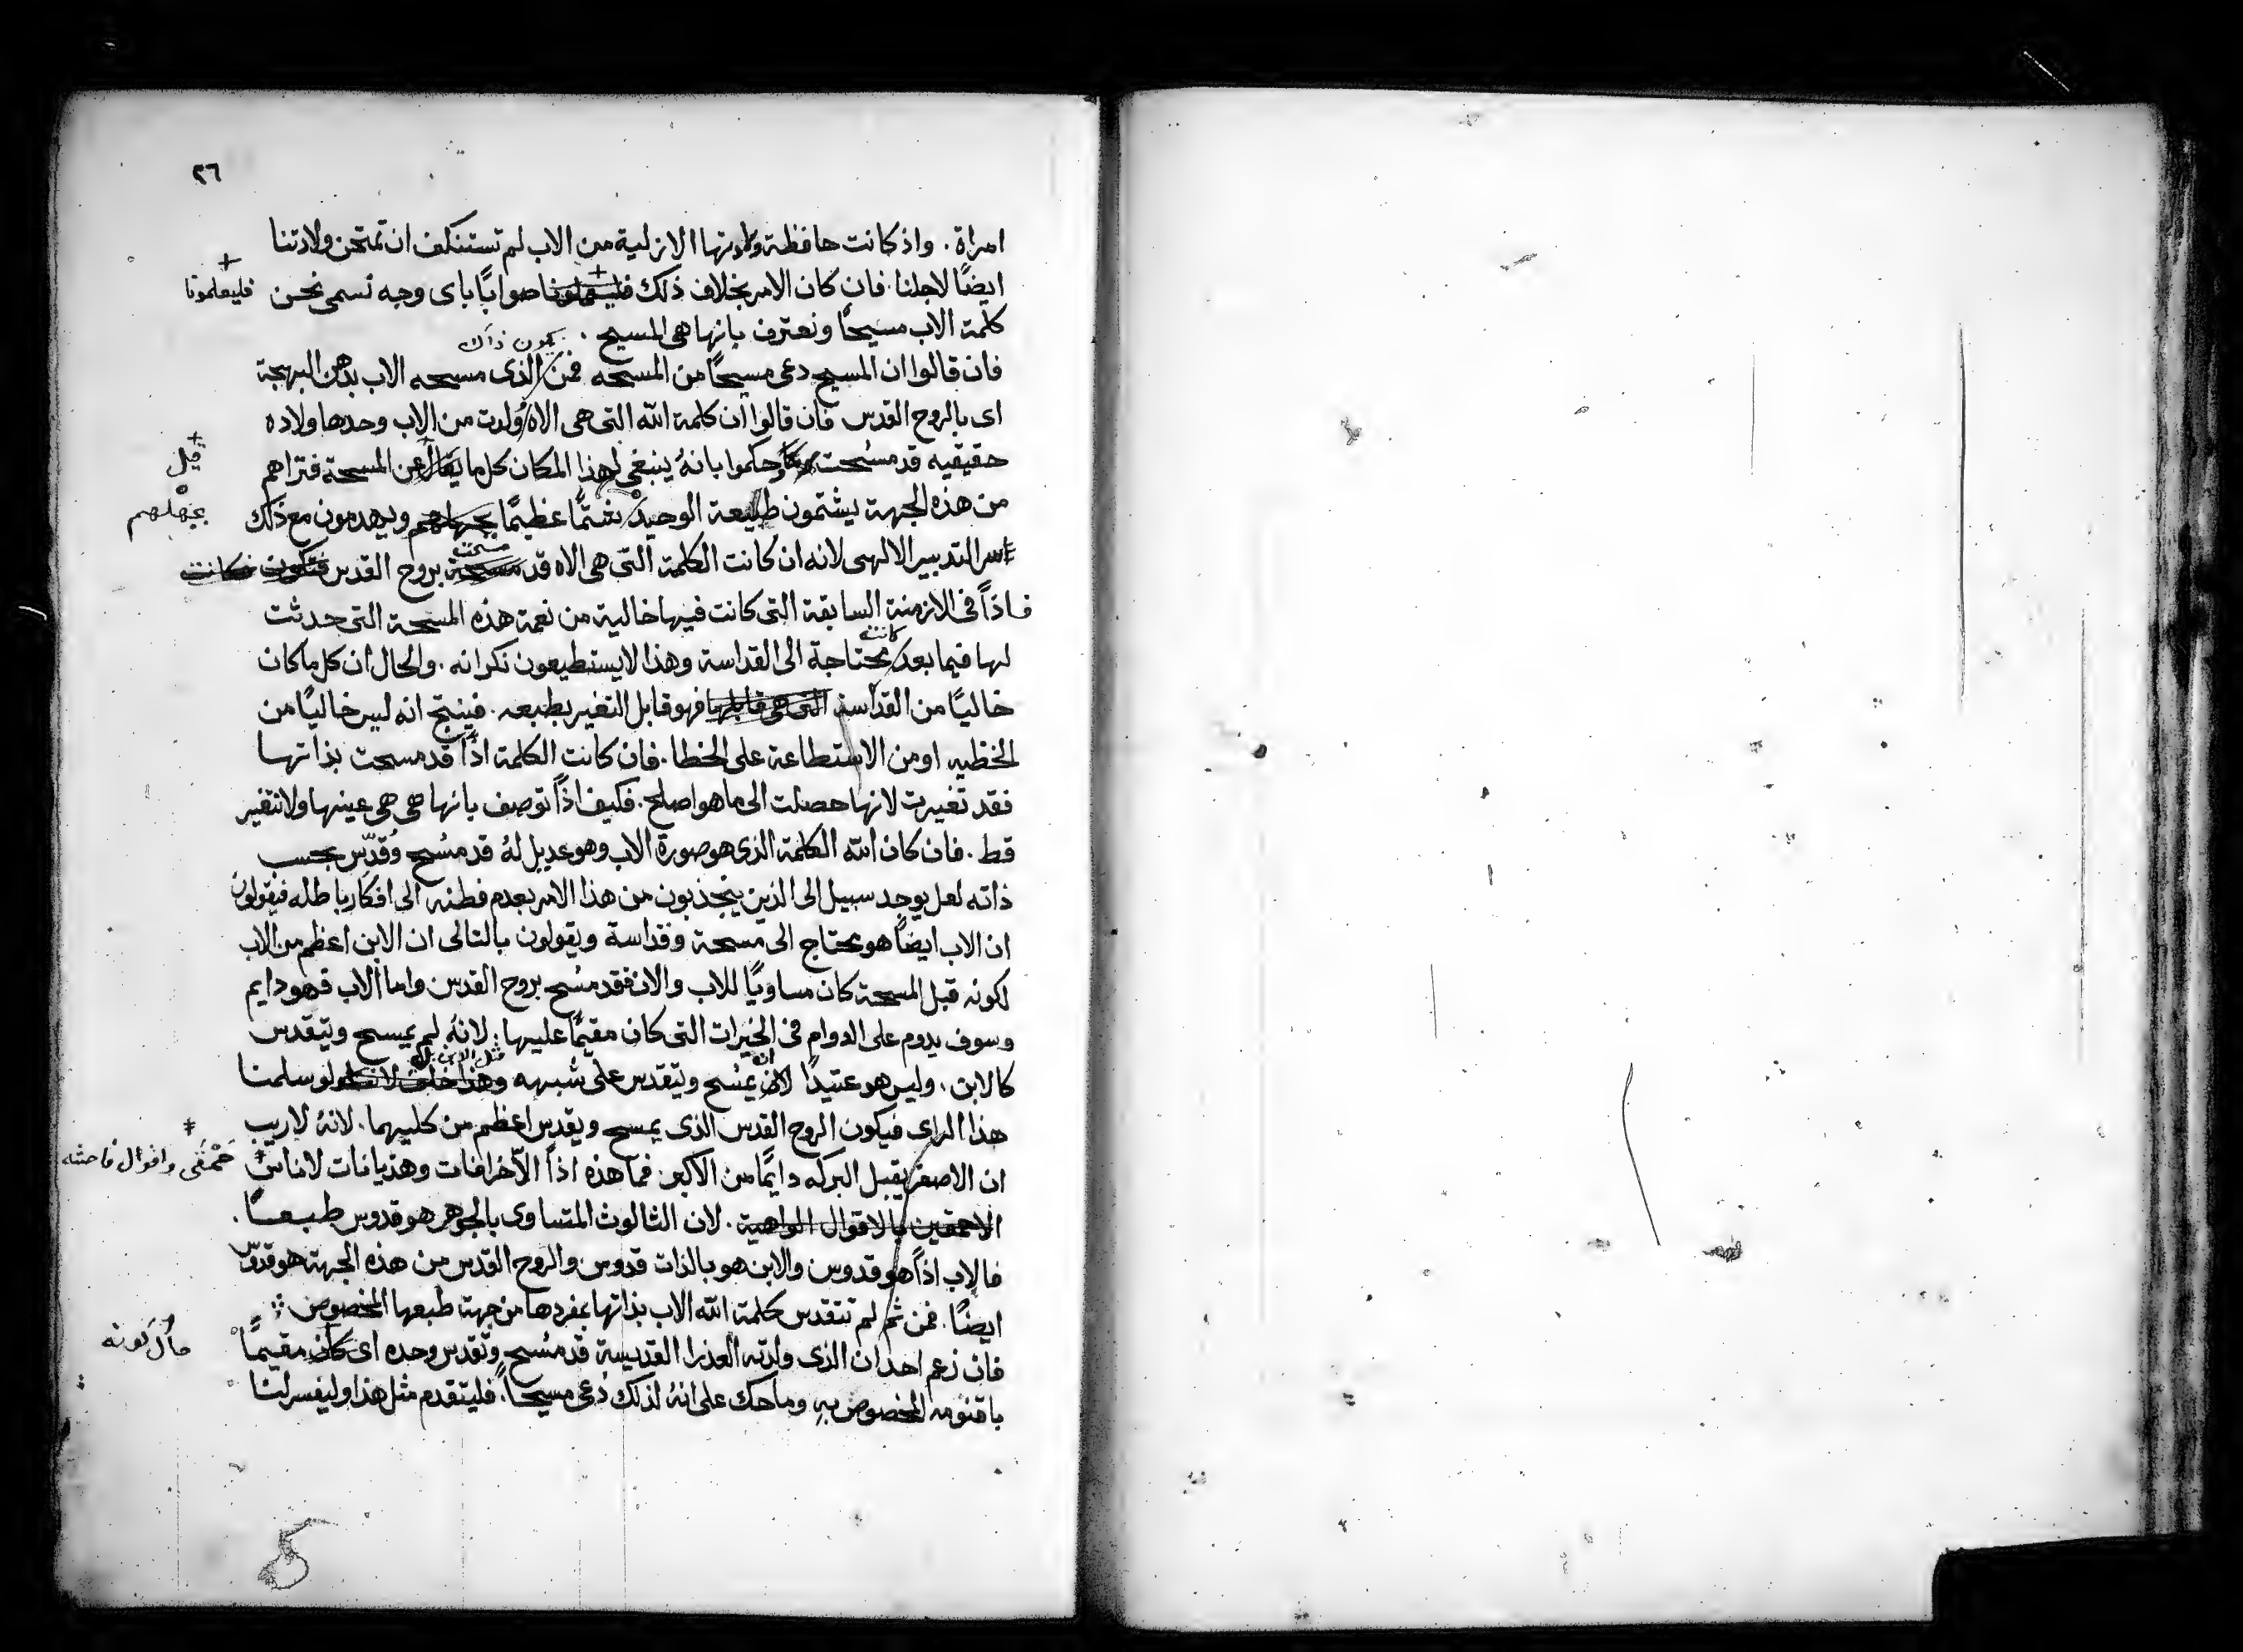 ٢٦
امراة . واذ كانت حافظة ولادتها الازلية من الاب لم تستنكف ان تمتحن ولادتنا
ايضًا لاجلنا . فان كان الامر بخلاف ذلك صوابًا باى وجه نسمى نحن
فليعلمونا
كلمة الاب مسيحًا ونعترف بانها هى المسيح .
يكون ذاك
فان قالوا ان المسيح دعى مسيحًا من المسحه فمن الذى مسحه الاب بدهن البهجة
اى بالروح القدس فان قالوا ان كلمة الله التى هى الاه وُلدت من الاب وحدها ولاده
حقيقيه قد مسُحت وحكموا بانهُ ينبغى لهذا المكان كل ما يقال عن المسحة فتراهم
قيل
من هذه الجهة يشتمون طبيعة الوحيد شتمًا عظيمًا بجهلهم ويهدمون مع ذلك
بجهلهم
سر التدبير الالهى لانه ان كانت الكلمة التى هى الاه قد مسحة بروح القدس فتكون فكانت
مسحت
فاذاً فى الازمنة السابقة التى كانت فيها خالية من نعمة هذه المسحة التى حدثت
لها فيما بعد محتاجة الى القداسة وهذا لا يستطيعون نكرانه . والحال ان كل ما كان
كانت
خاليًا من القداسة التى هى قابلها فهو قابل التغير بطبعه . فينتج انه ليس خاليًا من
الخطيه او من الاستطاعة على الخطا . فان كانت الكلمة اذًا قد مسحت بذاتها
فقد تغيرت لانها حصلت الى ما هو اصلح . فكيف اذاً توصف بانها هى هى عينها ولا تتغير
قط . فان كان الله الكلمة الذى هو صورة الاب وهو عديل لهُ قد مسُح وقُدّس بحسب
ذاته لعل يوجد سبيل الى الذين ينجذبون من هذا الامر بعدم فطنه الى افكار باطله فيقولون
ان الاب ايضًا هو محتاج الى مسحة وقداسة ويقولون بالتالى ان الابن اعظم من الاب
لكونه قبل المسحة كان مساويًا للاب والان فقد مسُح بروح القدس واما الاب فهو دايم
وسوف يدوم على الدوام فى الخيرات التى كان مقيمًا عليها . لانهُ لم يمسح ويتقدس
كالابن . وليس هو عتيدًا لان يمسُح ويتقدس على شبهه ولو سلمنا
هذا الراى فيكون الروح القدس الذى يمسح ويقدس اعظم من كليهما . لانهُ لا ريب
ان الاصغر يقبل البركه دايمًا من الاكبر فما هذه اذاً الا خرافات وهذيانات لاناس
حَمْقَى واقوال فاحشه
الاحمقين بالاقوال الواهية . لان الثالوث المتساوى بالجوهر هو قدوس طبعًا .
فالاب اذاً هو قدوس والابن هو بالذات قدوس والروح القدس من هذه الجهة هو قدوّس
ايضًا . فمن ثم لم تتقدس كلمة الله الاب بذاتها بمفردها من جهة طبعها المخصوص
فان زعم احد ان الذى ولدته العذرا القديسة قد مسُح وتقدس وحده اى كان مقيمًا
حال كونه
باقنومه المخصوص به وماحك على انهُ لذلك دُعى مسيحاً . فليتقدم مثل هذا وليفسر لنا